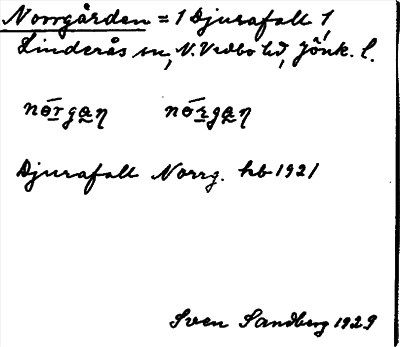 Norrgården = 1 Djurafall 1,
Linderås sn, N. Vedbo hd, Jönk. l.
Djurafall Norrg. hb 1921
Sven Sandberg 1929